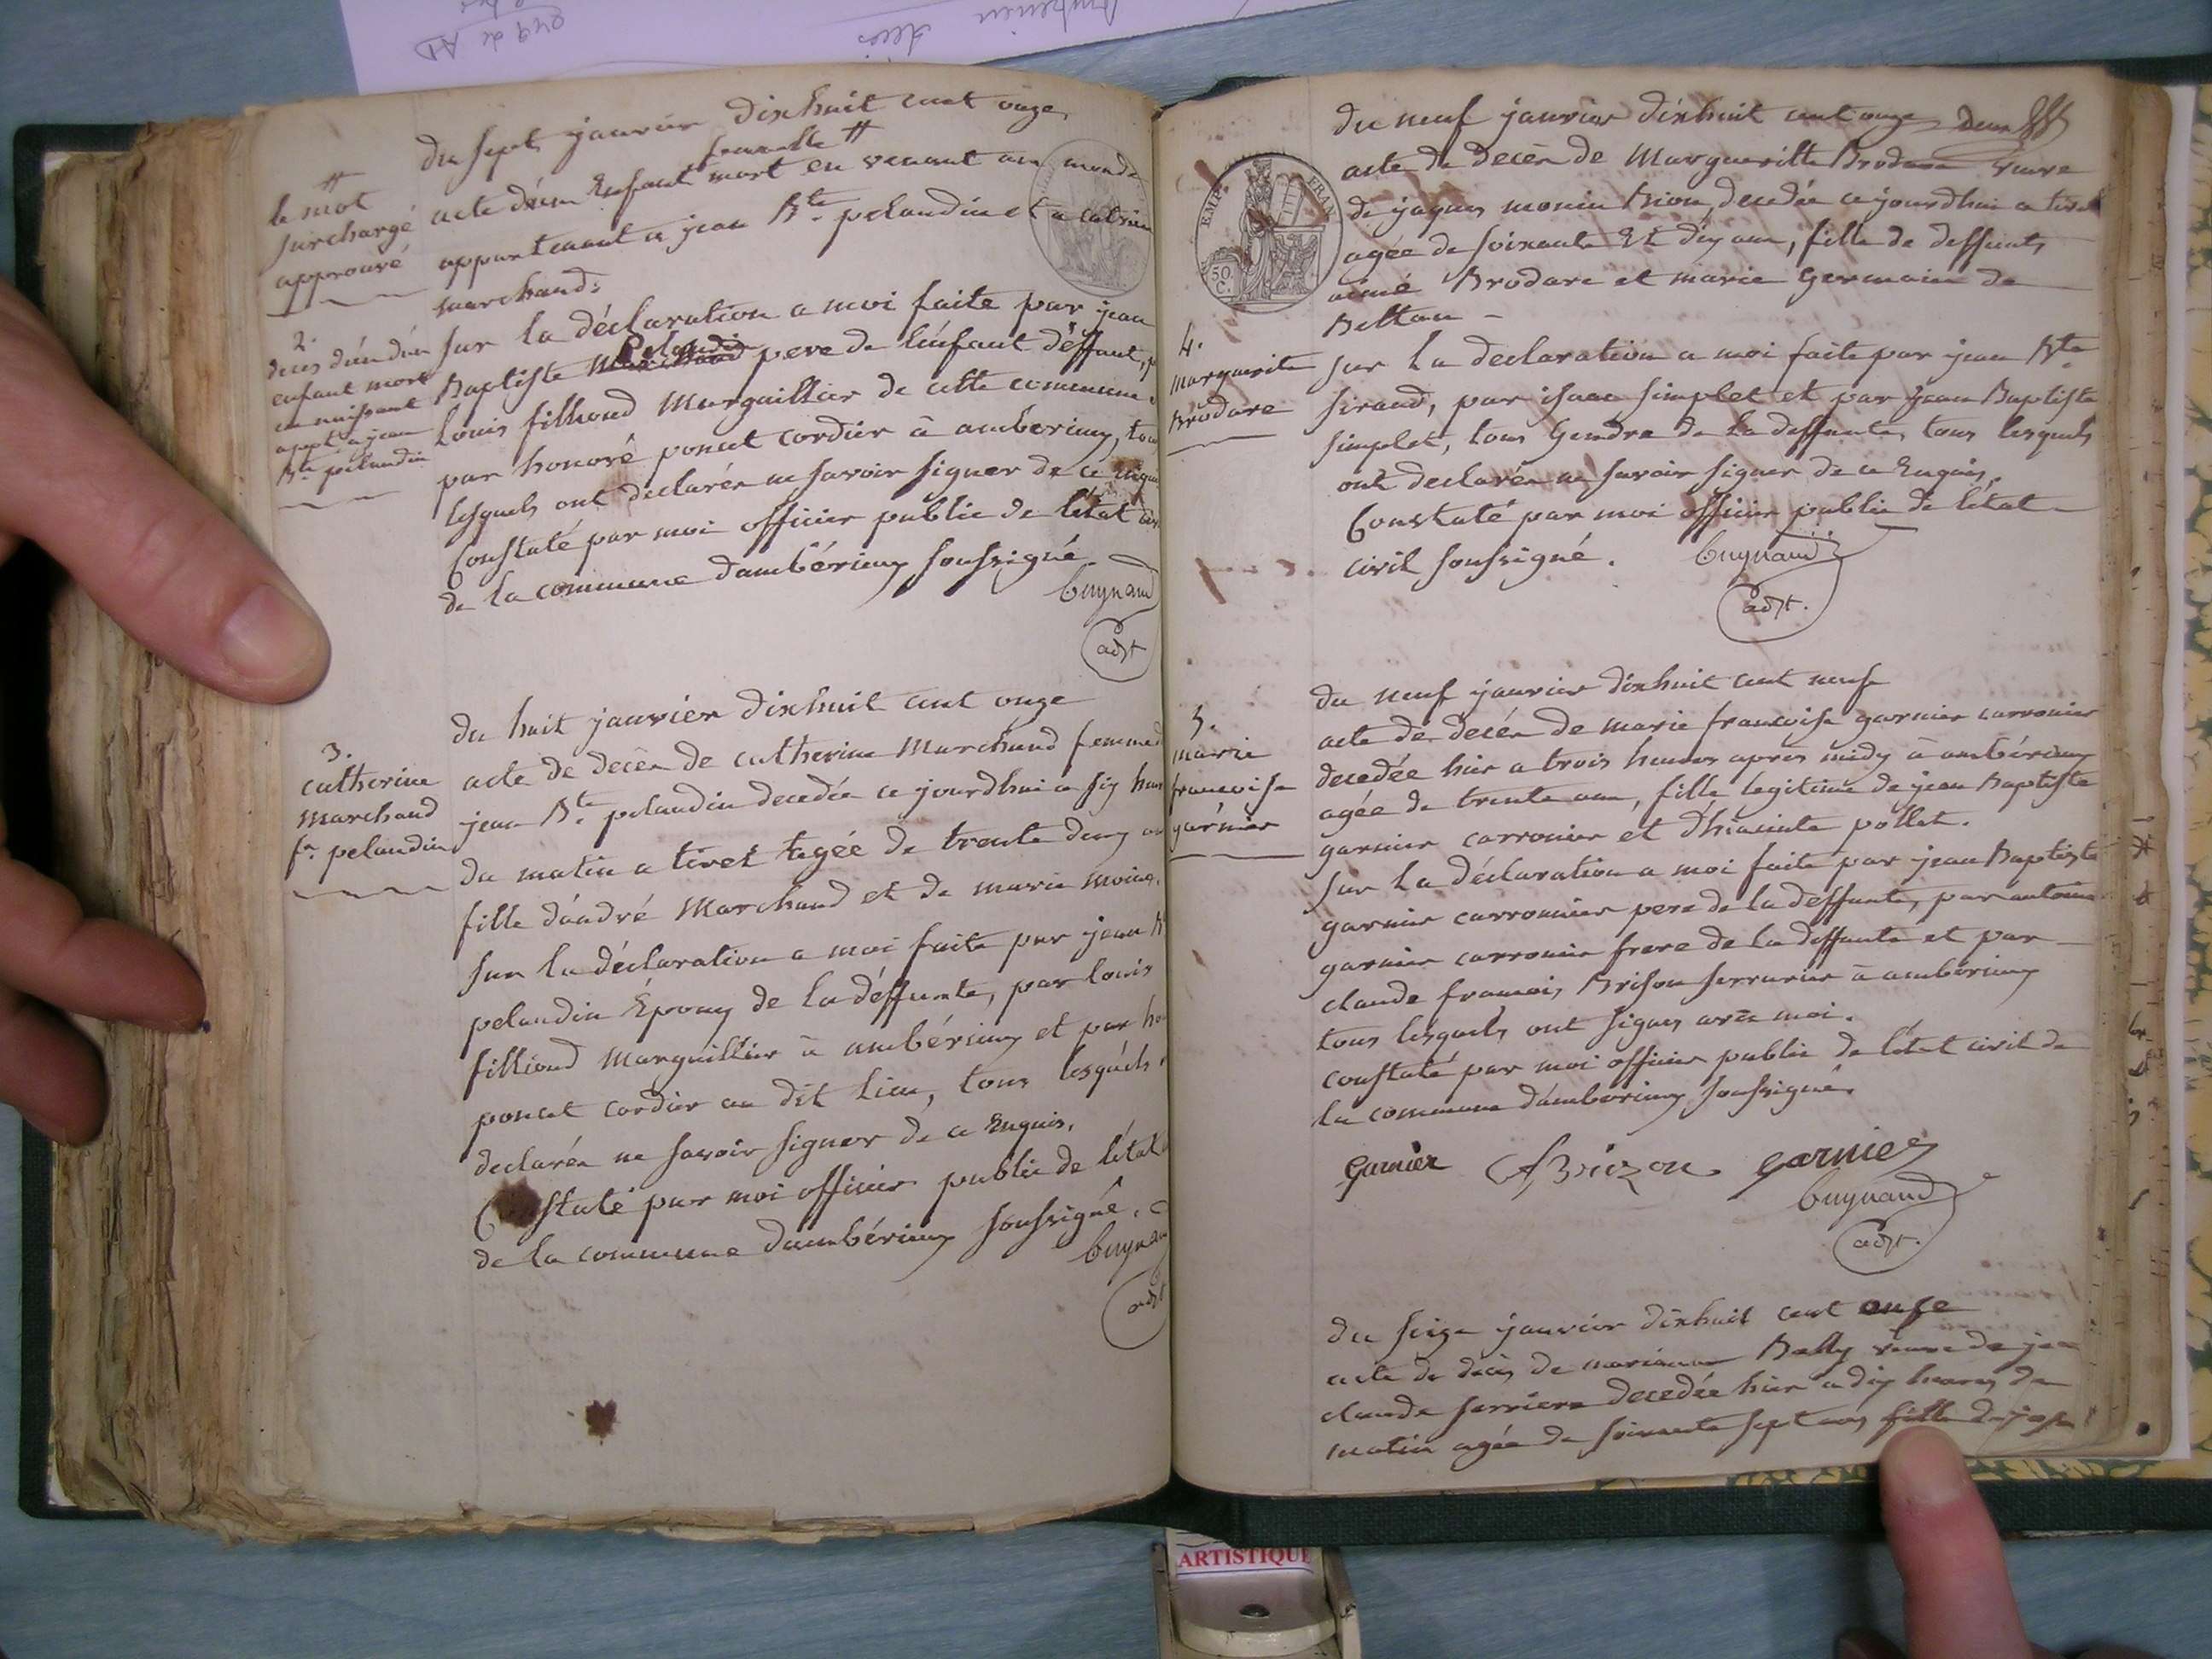 du sept janvier dixhuit cent onze
femelle #
acte d'un Enfant mort en venant au monde
appartenant a jean Bte pelandin et a catrine
marchand.
#
le mot
surchargé
approuvé
2.
deces d'un
enfant mort
en naissant
appt a jean
Bte pelandin
sur la déclaration a moi faite par jean
Pelandin
Baptiste pere de l'enfant déffunt, p
Louis filliond Marguillier de cette commune
par honoré poncet cordier à amberieux, tous
lesquels ont declarés ne savoir signer de ce enquis
Constaté par moi officier public de l'état civ
de la commune d'ambérieux soussigné.
buynand
adjt
du huit janvier dixhuit cent onze
3.
catherine
marchand
fe pelandin
acte de decès de catherine Marchand femme d
jean Bte pelandin decedée ce jourdhui a six heur
du matin a tiret agée de trente deux an
fille d'andré Marchand et de marie moine.
sur la déclaration a moi faite par jean B
pelandin Epoux de la déffunte, par louis
filliond Marguillier à ambérieux et par ho
poncet cordier au dit lieu, tous lesquels
declarés ne savoir signer de ce Enquis.
Constaté par moi officier public de l'état
de la commune d'ambérieux soussigné.
buynan
adjt
du neuf janvier dixhuit cent onze deux
EMP. FRAN
50 C.
acte de decès de Margueritte Brodare veuve
de jaques monin Brion, decedée ce jourdhui a tiret
agée de soixante Et dix ans, fille de deffunts
aimé Brodare et marie Germain de
Bettan
4.
Marguerite
Brodare
sur la declaration a moi faite par jean Bte
siraud, par isaac simplet et par jean Baptiste
simplet, tous Gendre de la deffunte, tous lesquels
ont declarés ne savoir signer de ce Enquis,
Constaté par moi officier public de l'état
civil soussigné.
buynand
adjt.
du neuf janvier dixhuit cent neuf
5.
marie
francoise
garnier
acte de decès de marie francoise garnier carronier
decedée hier a trois heures apres midy à ambérieux
agée de trente ans, fille legitime de jean Baptiste
garnier carronier et d'hiacinte pollet.
sur la déclaration a moi faite par jean Baptiste
garnier carronier pere de la deffunte, par antoine
garnier carronier frere de la deffunte et par
claude francois Brison serrurier à ambérieux
tous lesquels ont signes avec moi.
constaté par moi officier public de l'état civil de
la commune d'amberieux soussigné.
Garnier Brizon garnier
buynand
adjt.
du seize janvier dixhuit cent onze
acte de décès de marianne Belly veuve de jea
claude serriere decedée hier a dix heures du
matin agée de soixante sept ans fille de jose
ARTISTIQUE